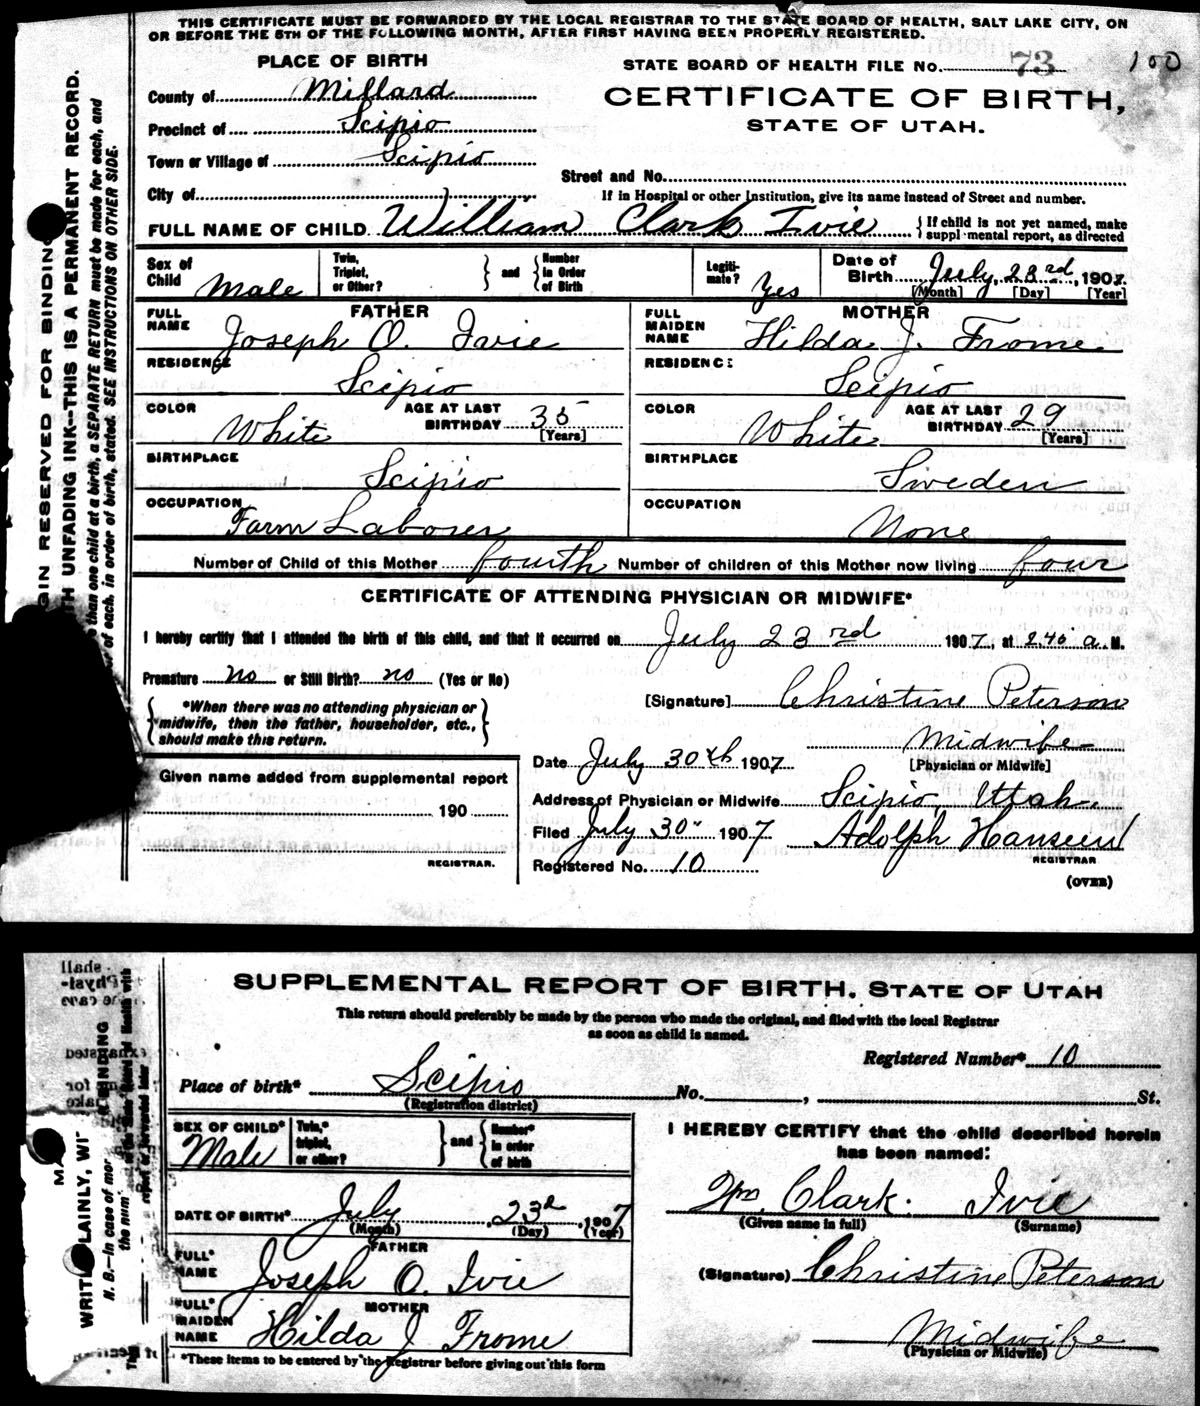 THIS CERTIFICATE MUST BE FORWARDED BY THE LOCAL REGISTRAR TO THE STATE BOARD OF HEALTH, SALT LAKE CITY, ON
OR BEFORE THE 5TH OF THE FOLLOWING MONTH, AFTER FIRST HAVING BEEN PROPERLY REGISTERED.
PLACE OF BIRTH
STATE BOARD OF HEALTH FILE NO. 73 100
County of Millard
CERTIFICATE OF BIRTH,
Precinct of Scipio
STATE OF UTAH.
Town or Village of Scipio
Street and No.
City of
If in Hospital or other Institution, give its name instead of Street and number.
FULL NAME OF CHILD William Clark Ivie { If child is not yet named, make
supplemental report, as directed
Sex of Child Male
Twin, Triplet, or Other? } and { Number in Order of Birth
Legitimate? Yes
Date of Birth July, 23rd, 1907.
[Month] [Day] [Year]
FATHER
FULL NAME Joseph O. Ivie
RESIDENCE
Scipio
COLOR White AGE AT LAST BIRTHDAY 35
[Years]
BIRTHPLACE
Scipio
OCCUPATION
Farm Laborer
MOTHER
FULL MAIDEN NAME Hilda J. Frome
RESIDENCE
Scipio
COLOR White AGE AT LAST BIRTHDAY 29
[Years]
BIRTHPLACE
Sweden
OCCUPATION
None
Number of Child of this Mother fourth Number of children of this Mother now living four
CERTIFICATE OF ATTENDING PHYSICIAN OR MIDWIFE*
I hereby certify that I attended the birth of this child, and that it occurred on July 23rd 1907, at 2.40 a. M.
Premature no or Still Birth? no (Yes or No)
[Signature] Christine Peterson
{ *When there was no attending physician or
midwife, then the father, householder, etc.,
should make this return. }
Midwife
[Physician or Midwife]
Date July 30th 1907
Given name added from supplemental report
190
REGISTRAR.
Address of Physician or Midwife Scipio, Utah.
Filed July 30" 1907 Adolph Hanseen
REGISTRAR
Registered No. 10
(OVER)
GIN RESERVED FOR BINDING
TH UNFADING INK--THIS IS A PERMANENT RECORD.
than one child at a birth, a SEPARATE RETURN must be made for each, and
of each, in order of birth, stated. SEE INSTRUCTIONS ON OTHER SIDE.
SUPPLEMENTAL REPORT OF BIRTH, STATE OF UTAH
This return should preferably be made by the person who made the original, and filed with the local Registrar
as soon as child is named.
Registered Number* 10
Place of birth* Scipio No. , St.
(Registration district)
SEX OF CHILD* Male
Twin,* triplet, or other? } and { Number* in order of birth
DATE OF BIRTH* July 23d, 1907
(Month) (Day) (Year)
FATHER
FULL* NAME Joseph O. Ivie
MOTHER
FULL* MAIDEN NAME Hilda J Frome
*These items to be entered by the Registrar before giving out this form
I HEREBY CERTIFY that the child described herein
has been named:
Wm. Clark. Ivie
(Given name in full) (Surname)
(Signature) Christine Peterson
Midwife
(Physician or Midwife)
WRITE PLAINLY, WI
N. B.—In case of mor
the num